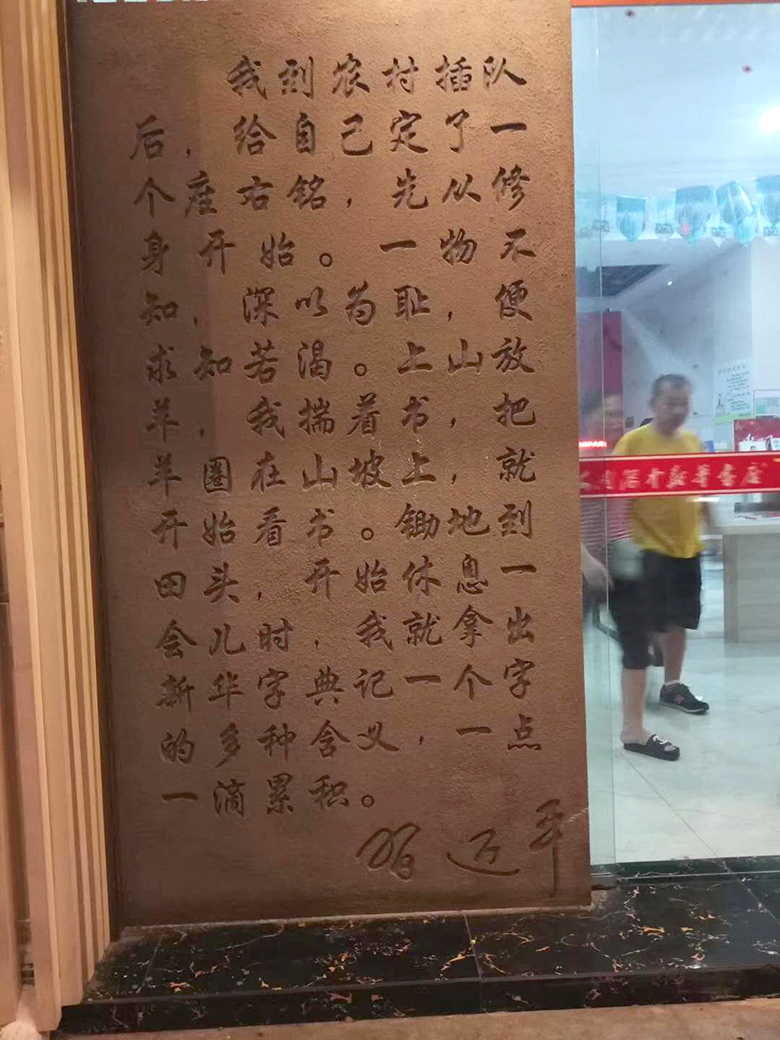 我到农村插队
后，给自己定了一
个座右铭，先从修
身开始。一物不
知，深以为耻，便
求知若渴。上山放
羊，我揣着书，把
羊圈在山坡上，就
开始看书。锄地到
田头，开始休息一
会儿时，我就拿出
新华字典记一个字
的多种含义，一点
一滴累积。
习近平
新华书店